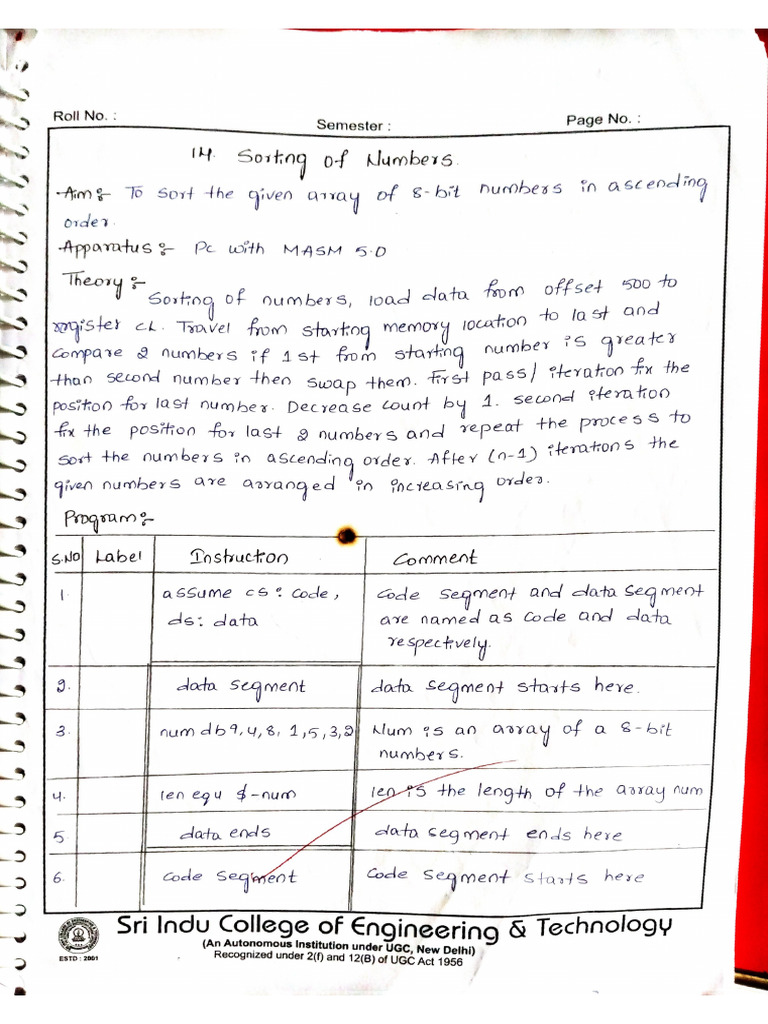 Roll No. :
Semester :
Page No. :
14. Sorting of Numbers.
Aim:- To sort the given array of 8-bit numbers in ascending
order.
Apparatus:- Pc with MASM 5.0
Theory:-
Sorting of numbers, load data from offset 500 to
register CL. Travel from starting memory location to last and
compare 2 numbers if 1st from starting number is greater
than second number then swap them. First pass/ iteration fix the
position for last number. Decrease count by 1. second iteration
fix the position for last 2 numbers and repeat the process to
sort the numbers in ascending order. After (n-1) iterations the
given numbers are arranged in increasing order.
Program:-
S.NO Label Instruction Comment
1. assume cs: code, code segment and data segment
ds: data are named as code and data
respectively.
2. data segment data segment starts here.
3. num db 9,4,8,1,5,3,2 Num is an array of a 8-bit
numbers.
4. len equ $-num len is the length of the array num
5. data ends data segment ends here
6. code segment code segment starts here
Sri Indu College of Engineering & Technology
(An Autonomous Institution under UGC, New Delhi)
Recognized under 2(f) and 12(B) of UGC Act 1956
ESTD : 2001